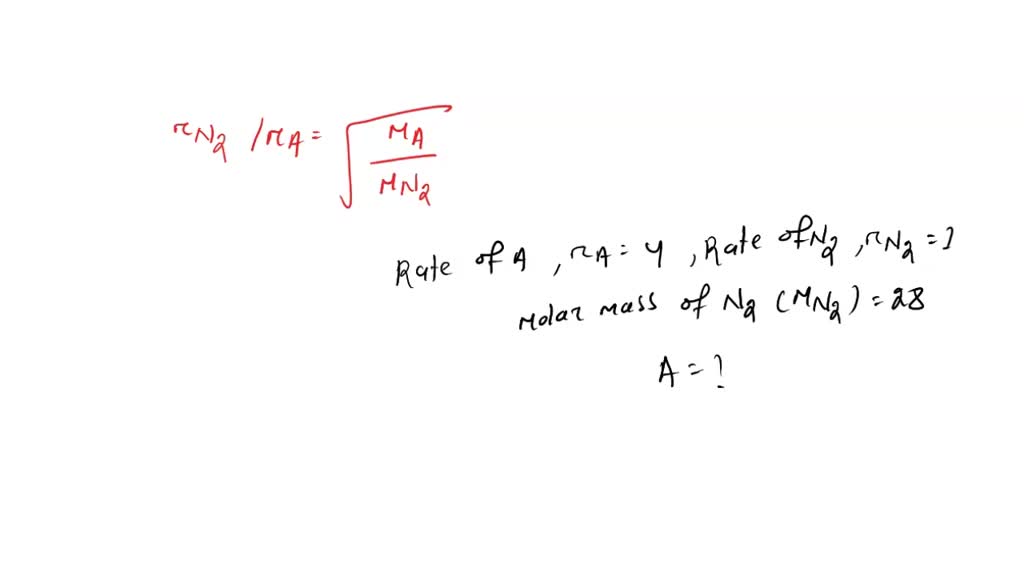 rN₂ / rA = √(MA / MN₂)
Rate of A, rA = 4, Rate of N₂, rN₂ = 1
Molar mass of N₂ (MN₂) = 28
A = ?